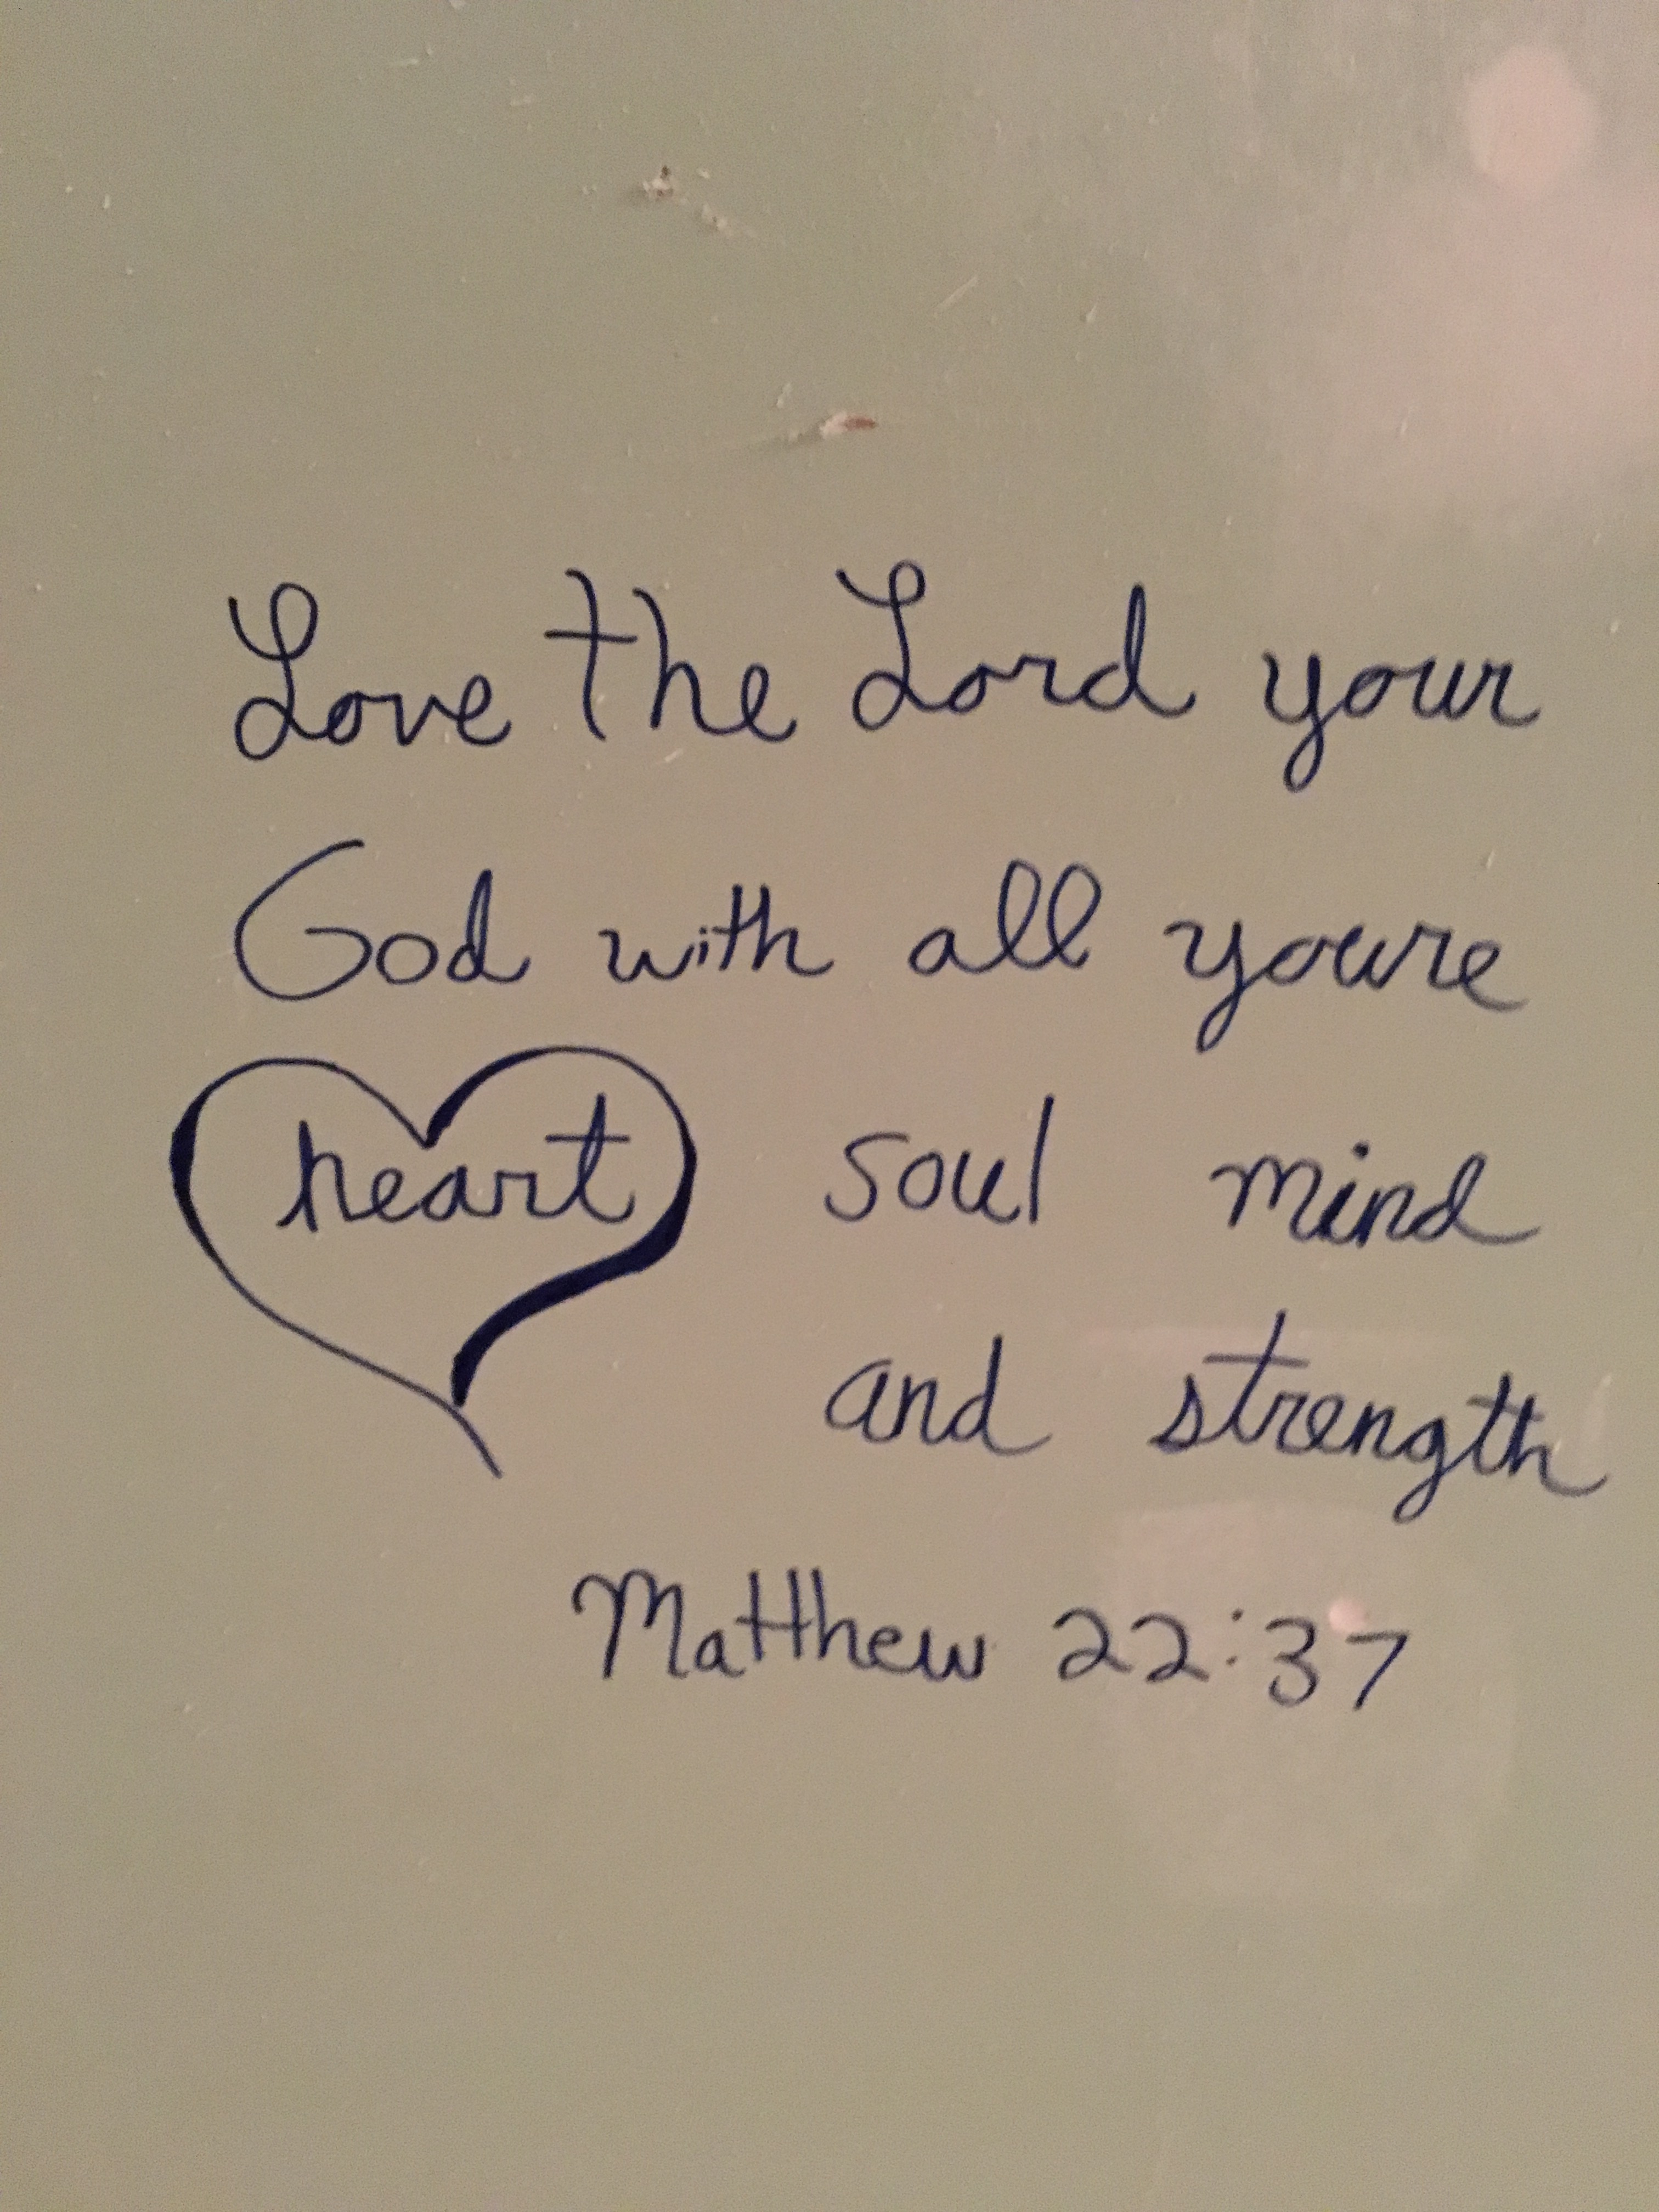 Love the Lord your
God with all youre
heart soul mind
and strength
Matthew 22:37